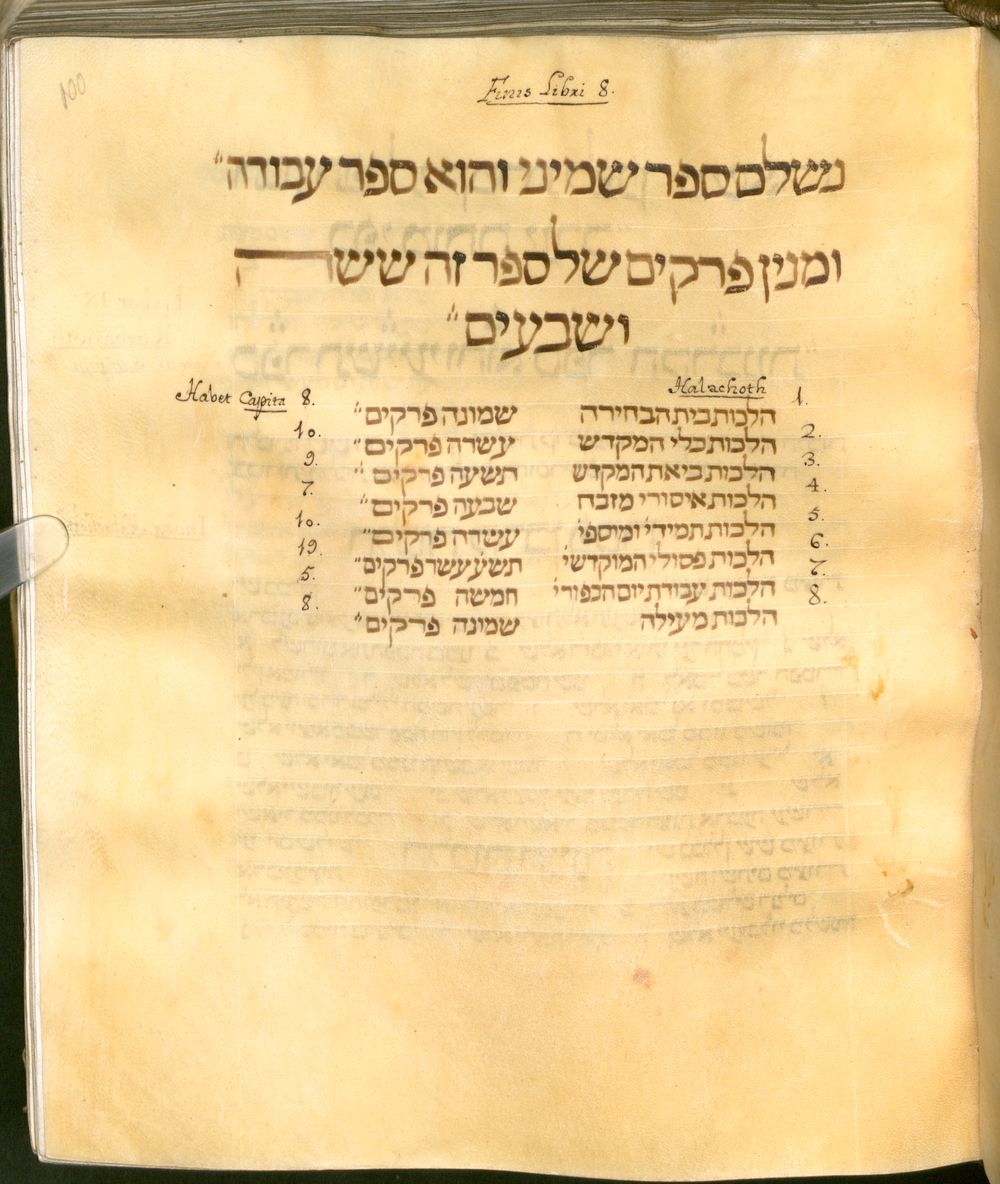 100
Finis Libri 8.
נשלם ספר שמיני והוא ספר עבודה״
ומנין פרקים של ספר זה ששה
ושבעים״
Halachoth 1. Habet Capita 8.
הלכות בית הבחירה שמונה פרקים״
2. 10.
הלכות כלי המקדש עשרה פרקים״
3. 9.
הלכות ביאת המקדש תשעה פרקים״
4. 7.
הלכות איסורי מזבח שבעה פרקים״
5. 10.
הלכות תמידי׳ ומוספי׳ עשרה פרקים״
6. 19.
הלכות פסולי המוקדשי׳ תשע עשר פרקים״
7. 5.
הלכות עבודת יום הכפורי׳ חמשה פרקים״
8. 8.
הלכות מעילה שמונה פרקים״